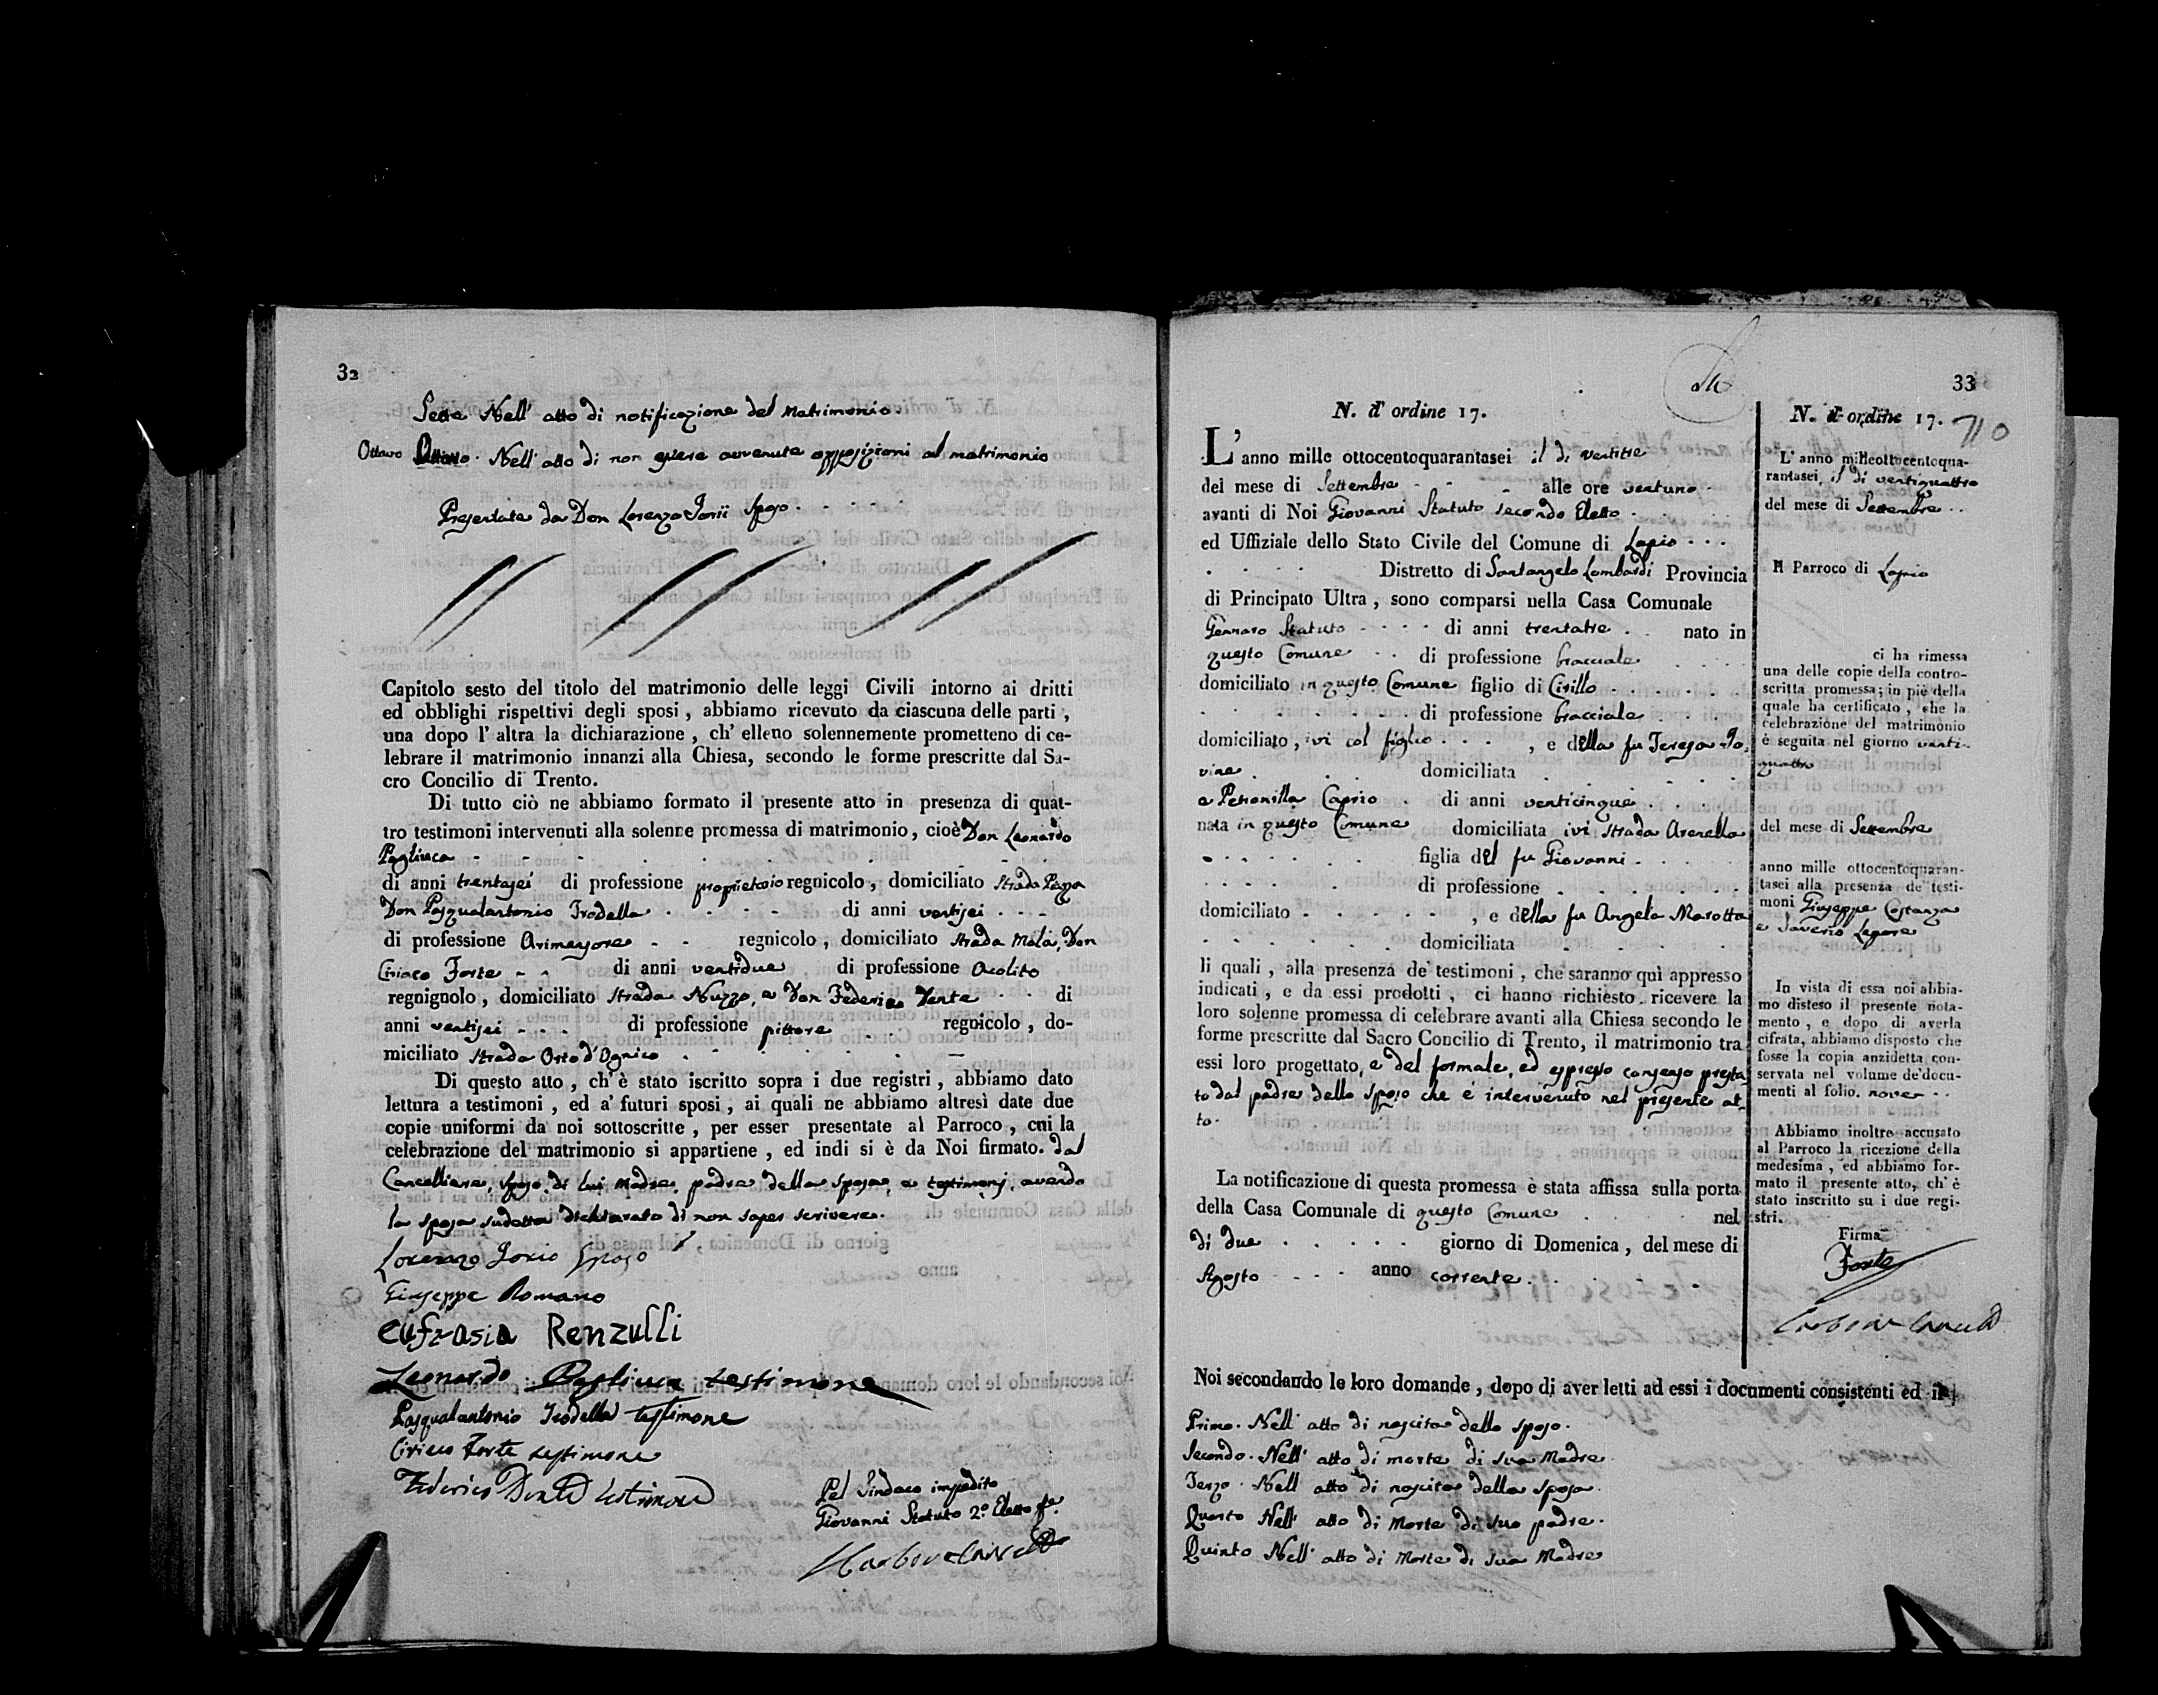 32
Sette Nell' atto di notificazione del Matrimonio.
Ottavo Ottavo. Nell' atto di non essere avvenute opposizioni al matrimonio
Presentate da Don Lorenzo Iorii Sposo.
Capitolo sesto del titolo del matrimonio delle leggi Civili intorno ai dritti
ed obblighi rispettivi degli sposi, abbiamo ricevuto da ciascuna delle parti,
una dopo l' altra la dichiarazione, ch' elleno solennemente prometteno di ce-
lebrare il matrimonio innanzi alla Chiesa, secondo le forme prescritte dal Sa-
cro Concilio di Trento.
Di tutto ciò ne abbiamo formato il presente atto in presenza di quat-
tro testimoni intervenuti alla solenne promessa di matrimonio, cioè Don Leonardo
Pagliuca
di anni trentasei di professione proprietario regnicolo, domiciliato Strada Piazza
Don Pasqualantonio Trodella di anni ventisei
di professione Arimensore regnicolo, domiciliato Strada Mola, Don
Ciriaco Forte di anni ventidue di professione Acolito
regnignolo, domiciliato Strada Nuzzo, e Don Federico Dente di
anni ventisei di professione pittore regnicolo, do-
miciliato Strada Orto d'Ognico
Di questo atto, ch' è stato iscritto sopra i due registri, abbiamo dato
lettura a testimoni, ed a' futuri sposi, ai quali ne abbiamo altresì date due
copie uniformi da noi sottoscritte, per esser presentate al Parroco, cui la
celebrazione del matrimonio si appartiene, ed indi si è da Noi firmato. dal
Cancelliere, sposo di lui Madre, padre della sposa, e testimonj, avendo
la sposa sudetta dichiarato di non saper scrivere.
Lorenzo Iorio Sposo
Giuseppe Romano
Eufrasia Renzulli
Leonardo Pagliuca testimone
Pasqualantonio Trodella testimone
Ciriaco Forte testimone
Federico Dente testimone
Pel Sindaco impedito
Giovanni Statuto 2.° Eletto
33
N. d' ordine 17.
L' anno mille ottocentoquarantasei il di ventitre
del mese di Settembre alle ore ventuno
avanti di Noi Giovanni Statuto secondo Eletto
ed Uffiziale dello Stato Civile del Comune di Lapio
Distretto di Santangelo Lombardi Provincia
di Principato Ultra, sono comparsi nella Casa Comunale
Gennaro Statuto di anni trentatre nato in
questo Comune di professione bracciale
domiciliato in questo Comune figlio di Cirillo
di professione bracciale
domiciliato, ivi col figlio, e della fu Teresa Io,
vine domiciliata
e Petronilla Caprio di anni venticinque
nata in questo Comune domiciliata ivi Strada Arenella
figlia del fu Giovanni
di professione
domiciliato, e della fu Angela Marotta
domiciliata
li quali, alla presenza de' testimoni, che saranno quì appresso
indicati, e da essi prodotti, ci hanno richiesto ricevere la
loro solenne promessa di celebrare avanti alla Chiesa secondo le
forme prescritte dal Sacro Concilio di Trento, il matrimonio tra
essi loro progettato, e del formale, ed espresso consenso presta,
to dal padre dello sposo che è intervenuto nel presente at,
to.
La notificazione di questa promessa è stata affissa sulla porta
della Casa Comunale di questo Comune nel
di due giorno di Domenica, del mese di
Agosto anno corrente
Noi secondando le loro domande, dopo di aver letti ad essi i documenti consistenti ed il
Primo. Nell' atto di nascita dello sposo.
Secondo. Nell' atto di morte di sua Madre
Terzo. Nell atto di nascita della sposa.
Quarto Nell' atto di Morte di suo padre.
Quinto Nell' atto di Morte di sua Madre
N. d' ordine 17.
710
L' anno milleottocentoqua-
rantasei, il di ventiquattro
del mese di Settembre
Il Parroco di Lapio
ci ha rimessa
una delle copie della contro-
scritta promessa; in piè della
quale ha certificato, che la
celebrazione del matrimonio
è seguita nel giorno venti-
quattro
del mese di Settembre
anno mille ottocentoquaran-
tasei alla presenza de' testi-
moni Giuseppe Costanza
e Saverio Lepore
In vista di essa noi abbia-
mo disteso il presente nota-
mento, e dopo di averla
cifrata, abbiamo disposto che
fosse la copia anzidetta con-
servata nel volume de'docu-
menti al folio. nove
Abbiamo inoltre accusato
al Parroco la ricezione della
medesima, ed abbiamo for-
mato il presente atto, ch' è
stato inscritto su i due regi-
stri.
Firma
Forte